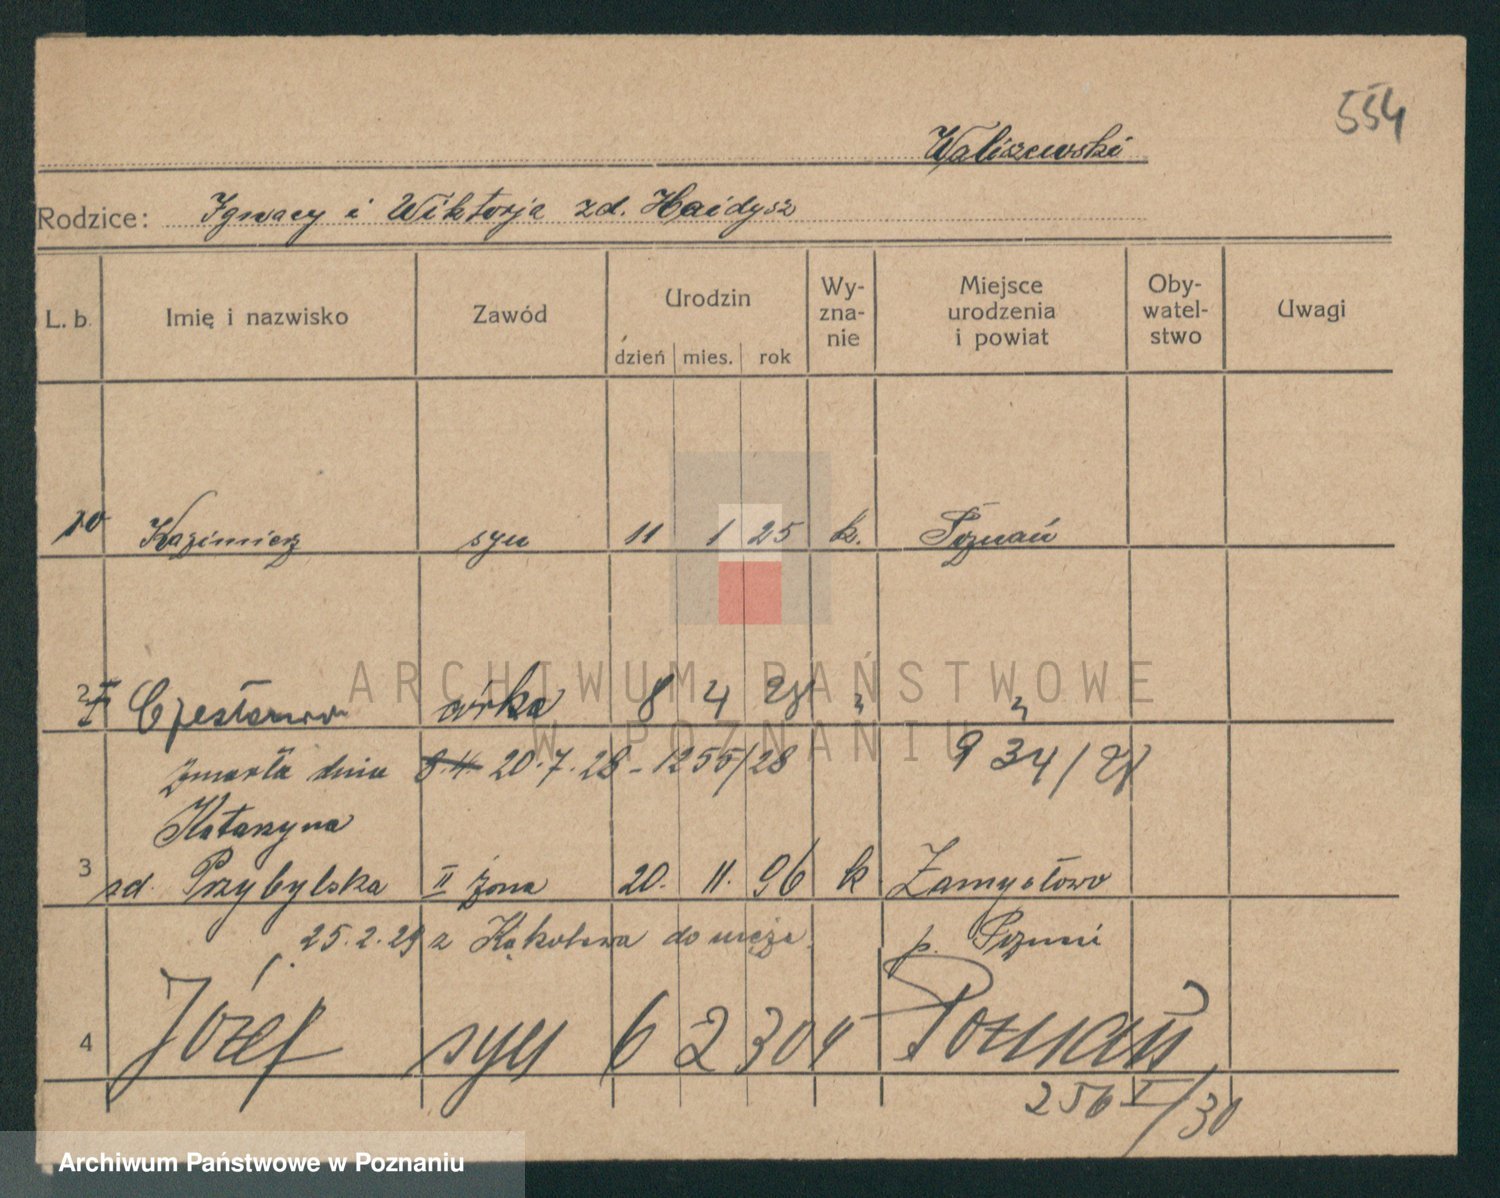 554
Waliszewski
Rodzice: Ignacy i Wiktorja zd. Haidysz
L. b. Imię i nazwisko Zawód Urodzin dzień mies. rok Wy-zna-nie Miejsce urodzenia i powiat Oby-watel-stwo Uwagi
10 Kazimierz syn 11 1 25 k. Poznań
2 Czesława córka 8 4 28 " "
zmarła dnia 8.4. 20.7.28 - 1255/28 934/28
Katarzyna
3 zd. Przybylska II żona 20. 11. 96 k Zamysłowo
25.2.29 z Kąkolewa do męża. p.
4 Józef syn 6 2 30 Poznań
256 I/30
ARCHIWUM PAŃSTWOWE
W POZNANIU
Archiwum Państwowe w Poznaniu